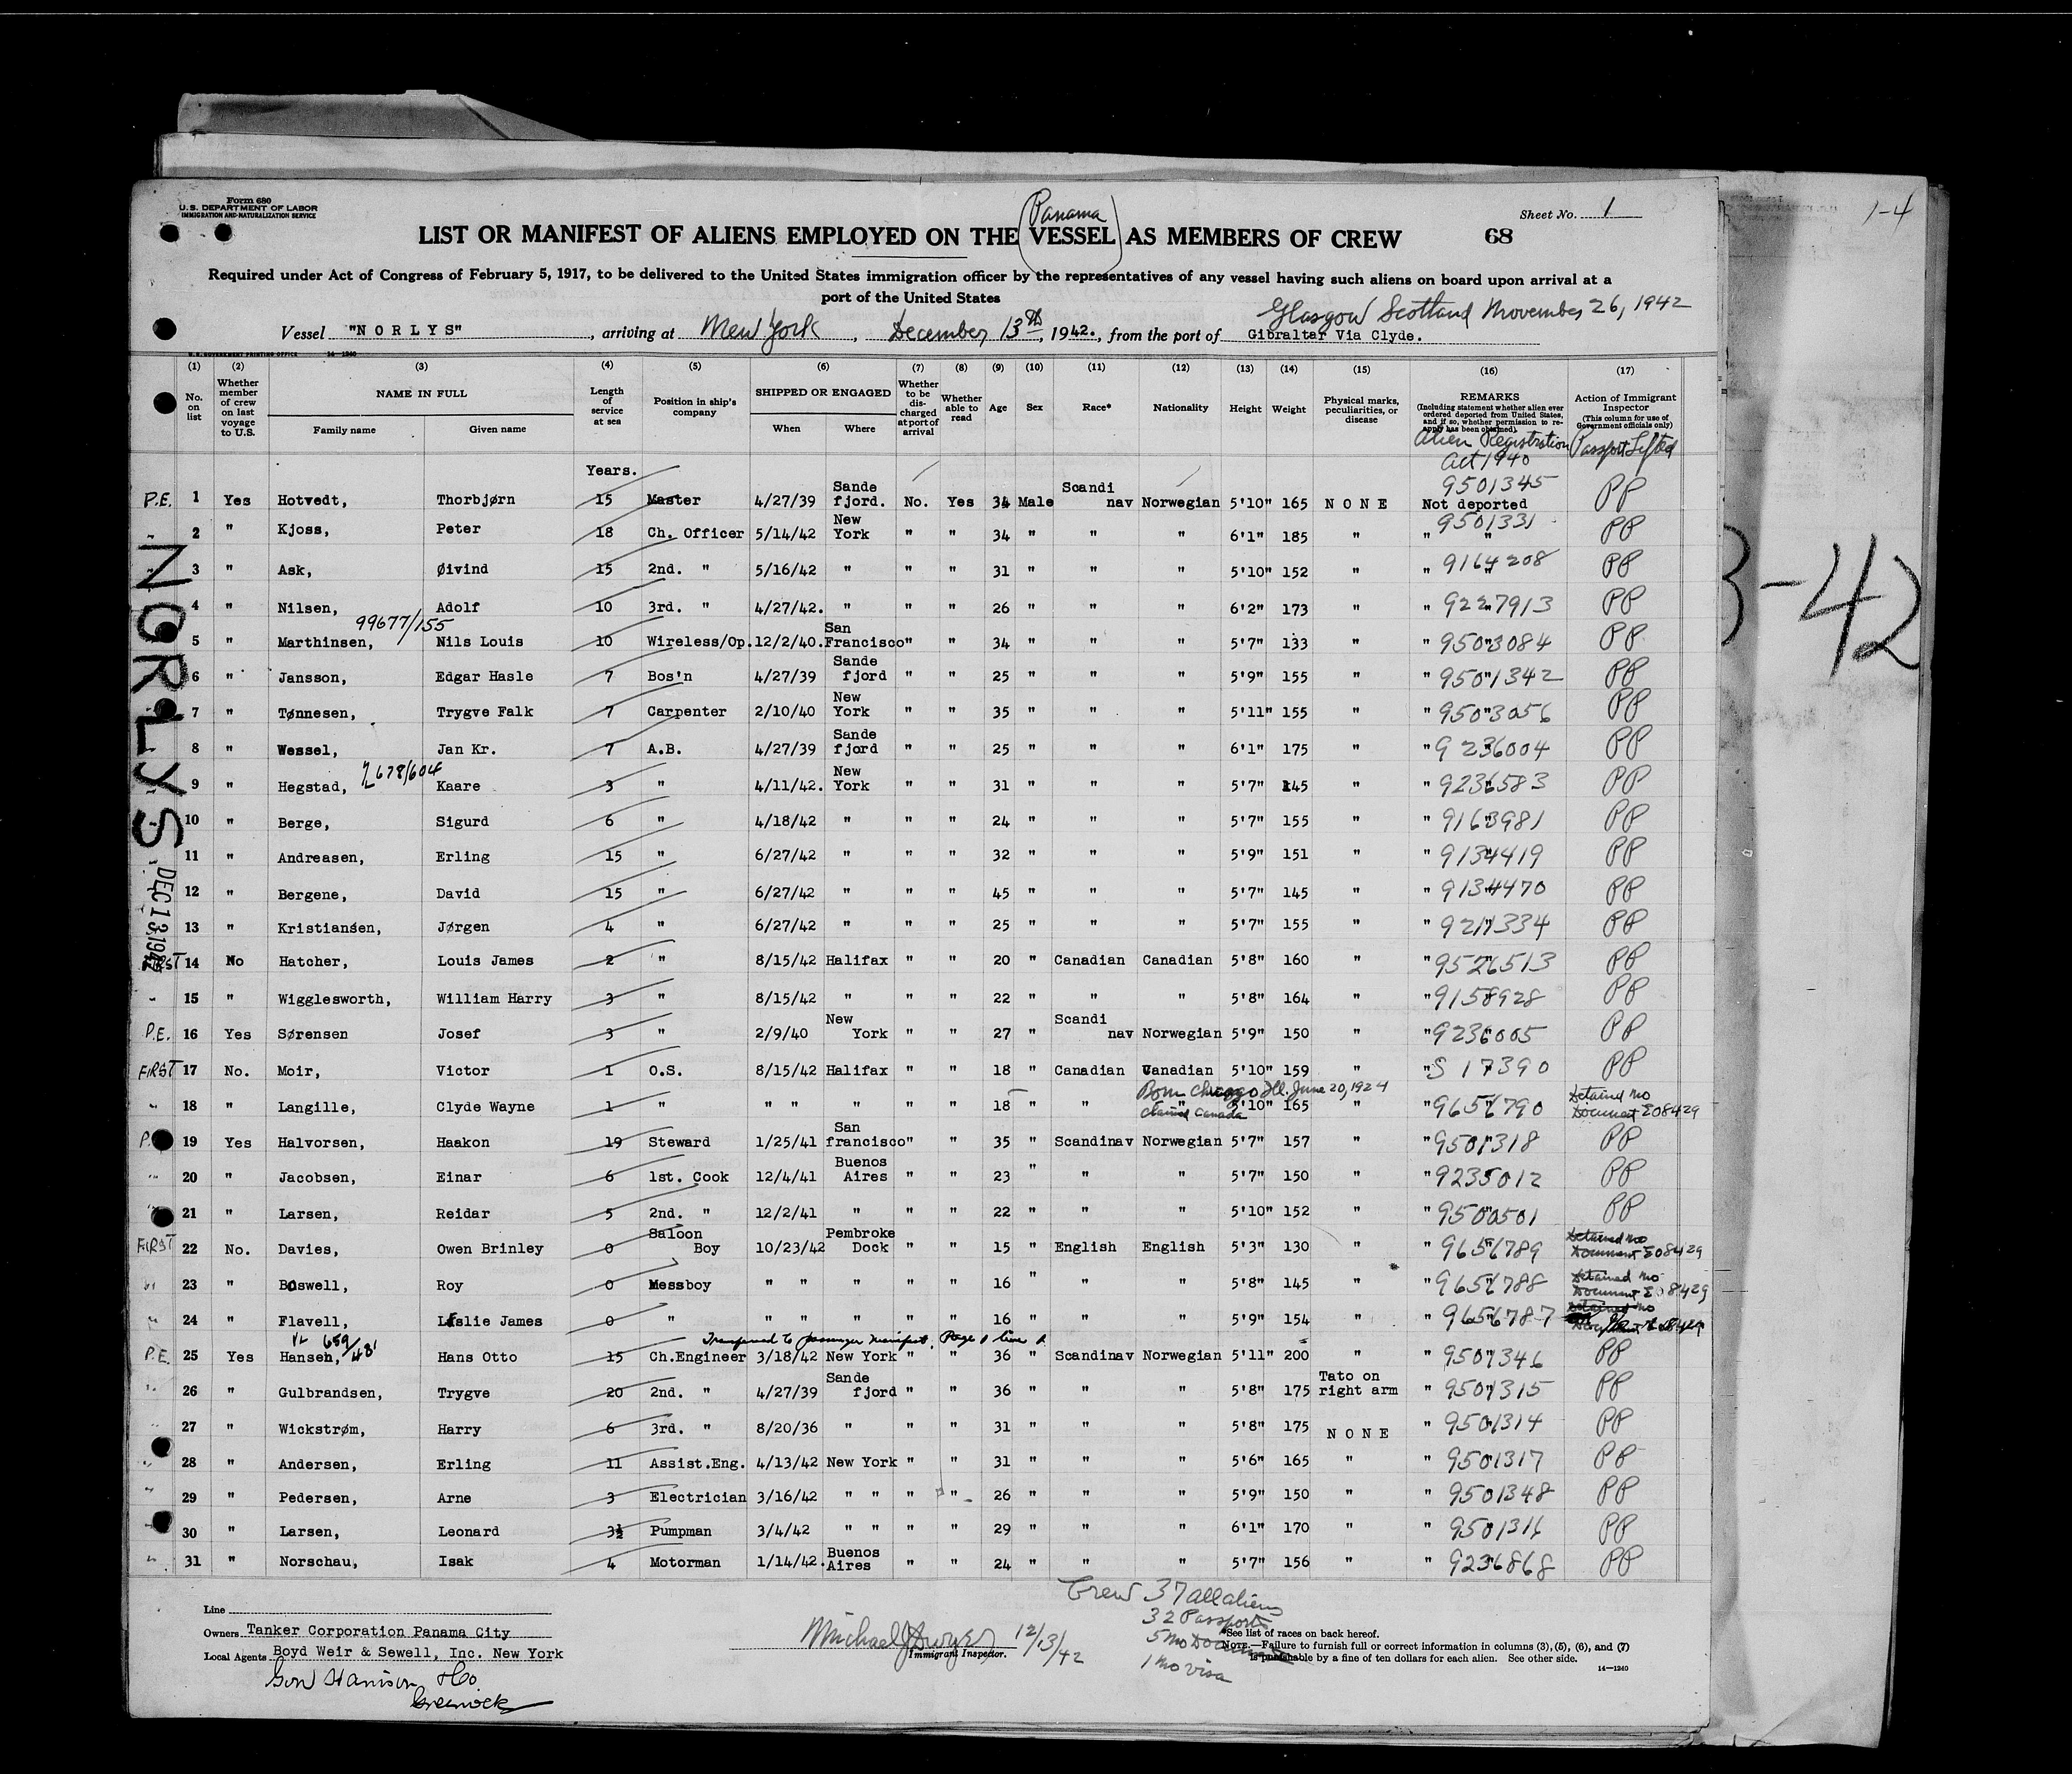 1-4
Form 680
U.S. DEPARTMENT OF LABOR
IMMIGRATION AND NATURALIZATION SERVICE
Sheet No. 1
Panama
LIST OR MANIFEST OF ALIENS EMPLOYED ON THE VESSEL AS MEMBERS OF CREW 68
Required under Act of Congress of February 5, 1917, to be delivered to the United States immigration officer by the representatives of any vessel having such aliens on board upon arrival at a
port of the United States
Glasgow Scotland November 26, 1942
Vessel "NORLYS", arriving at New York, December 13th, 1942., from the port of Gibraltar Via Clyde.
U.S. GOVERNMENT PRINTING OFFICE 14-1240
(1) (2) (3) (4) (5) (6) (7) (8) (9) (10) (11) (12) (13) (14) (15) (16) (17)
No. on list
Whether member of crew on last voyage to U.S.
NAME IN FULL
Family name Given name
Length of service at sea
Position in ship's company
SHIPPED OR ENGAGED
When Where
Whether to be discharged at port of arrival
Whether able to read
Age Sex Race* Nationality Height Weight
Physical marks, peculiarities, or disease
REMARKS
(Including statement whether alien ever ordered deported from United States, and if so, whether permission to reapply has been obtained)
Alien Registration Act 1940
Action of Immigrant Inspector
(This column for use of Government officials only)
Passport Lifted
Years.
P.E. 1 Yes Hotvedt, Thorbjørn 15 Master 4/27/39 Sande fjord. No. Yes 34 Male Scandi nav Norwegian 5'10" 165 NONE 9501345 Not deported PP
2 " Kjoss, Peter 18 Ch. Officer 5/14/42 New York " " 34 " " " 6'1" 185 " " 9501331 " PP
3 " Ask, Øivind 15 2nd. " 5/16/42 " " " 31 " " " 5'10" 152 " " 9164208 PP
4 " Nilsen, Adolf 10 3rd. " 4/27/42. " " " 26 " " " 6'2" 173 " " 9227913 PP
99677/155
5 " Marthinsen, Nils Louis 10 Wireless/Op. 12/2/40. San Francisco " " 34 " " " 5'7" 133 " " 9503084 PP
6 " Jansson, Edgar Hasle 7 Bos'n 4/27/39 Sande fjord " " 25 " " " 5'9" 155 " " 9501342 PP
7 " Tønnesen, Trygve Falk 7 Carpenter 2/10/40 New York " " 35 " " " 5'11" 155 " " 9503056 PP
8 " Wessel, Jan Kr. 7 A.B. 4/27/39 Sande fjord " " 25 " " " 6'1" 175 " " 9236004 PP
678/604
9 " Hegstad, Kaare 3 " 4/11/42. New York " " 31 " " " 5'7" 145 " " 9236583 PP
10 " Berge, Sigurd 6 " 4/18/42 " " " 24 " " " 5'7" 155 " " 9163981 PP
11 " Andreasen, Erling 15 " 6/27/42 " " " 32 " " " 5'9" 151 " " 9134419 PP
12 " Bergene, David 15 " 6/27/42 " " " 45 " " " 5'7" 145 " " 9134470 PP
13 " Kristiansen, Jørgen 4 " 6/27/42 " " " 25 " " " 5'7" 155 " " 9211334 PP
FIRST 14 No Hatcher, Louis James 2 " 8/15/42 Halifax " " 20 " Canadian Canadian 5'8" 160 " " 9526513 PP
15 " Wigglesworth, William Harry 3 " 8/15/42 " " " 22 " " " 5'8" 164 " " 9158928 PP
P.E. 16 Yes Sørensen Josef 3 " 2/9/40 New York " " 27 " Scandi nav Norwegian 5'9" 150 " " 9236005 PP
FIRST 17 No. Moir, Victor 1 O.S. 8/15/42 Halifax " " 18 " Canadian Canadian 5'10" 159 " " S 17390 PP
Born Chicago Ill. June 20, 1924
18 " Langille, Clyde Wayne 1 " " " " " " 18 " " claimed Canada 5'10" 165 " " 9656790 Detained No Document 208429
P. 19 Yes Halvorsen, Haakon 19 Steward 1/25/41 San francisco " " 35 " Scandinav Norwegian 5'7" 157 " " 9501318 PP
20 " Jacobsen, Einar 6 1st. Cook 12/4/41 Buenos Aires " " 23 " " " 5'7" 150 " " 9235012 PP
21 " Larsen, Reidar 5 2nd. " 12/2/41 " " " 22 " " " 5'10" 152 " " 9500501 PP
FIRST 22 No. Davies, Owen Brinley 0 Saloon Boy 10/23/42 Pembroke Dock " " 15 " English English 5'3" 130 " " 9656789 Detained No Document 208429
23 " Boswell, Roy 0 Messboy " " " " " 16 " " " 5'8" 145 " " 9656788 Detained No Document 208429
24 " Flavell, Leslie James 0 " " " " " " 16 " " " 5'9" 154 " " 9656787 Detained No
Transferred to passenger manifest, Page 1 line 1.
659/481
P.E. 25 Yes Hansen, Hans Otto 15 Ch.Engineer 3/18/42 New York " " 36 " Scandinav Norwegian 5'11" 200 " " 9501346 PP
26 " Gulbrandsen, Trygve 20 2nd. " 4/27/39 Sande fjord " " 36 " " " 5'8" 175 Tato on right arm " 9501315 PP
27 " Wickstrøm, Harry 6 3rd. " 8/20/36 " " " 31 " " " 5'8" 175 NONE " 9501314 PP
28 " Andersen, Erling 11 Assist.Eng. 4/13/42 New York " " 31 " " " 5'6" 165 " " 9501317 PP
29 " Pedersen, Arne 3 Electrician 3/16/42 " " " " 26 " " " 5'9" 150 " " 9501348 PP
30 " Larsen, Leonard 3½ Pumpman 3/4/42 " " " " 29 " " " 6'1" 170 " " 9501316 PP
31 " Norschau, Isak 4 Motorman 1/14/42. Buenos Aires " " 24 " " " 5'7" 156 " " 9236868 PP
NORLYS
DEC 13 1942
3-42
Line
Owners Tanker Corporation Panama City
Local Agents Boyd Weir & Sewell, Inc. New York
Harrison & Co.
Greenock
Michael J Dwyer 12/13/42
Immigrant Inspector.
Crew 37 all aliens
32 Passports
5 No Document
1 No visa
*See list of races on back hereof.
NOTE.—Failure to furnish full or correct information in columns (3), (5), (6), and (7)
is punishable by a fine of ten dollars for each alien. See other side.
14-1240